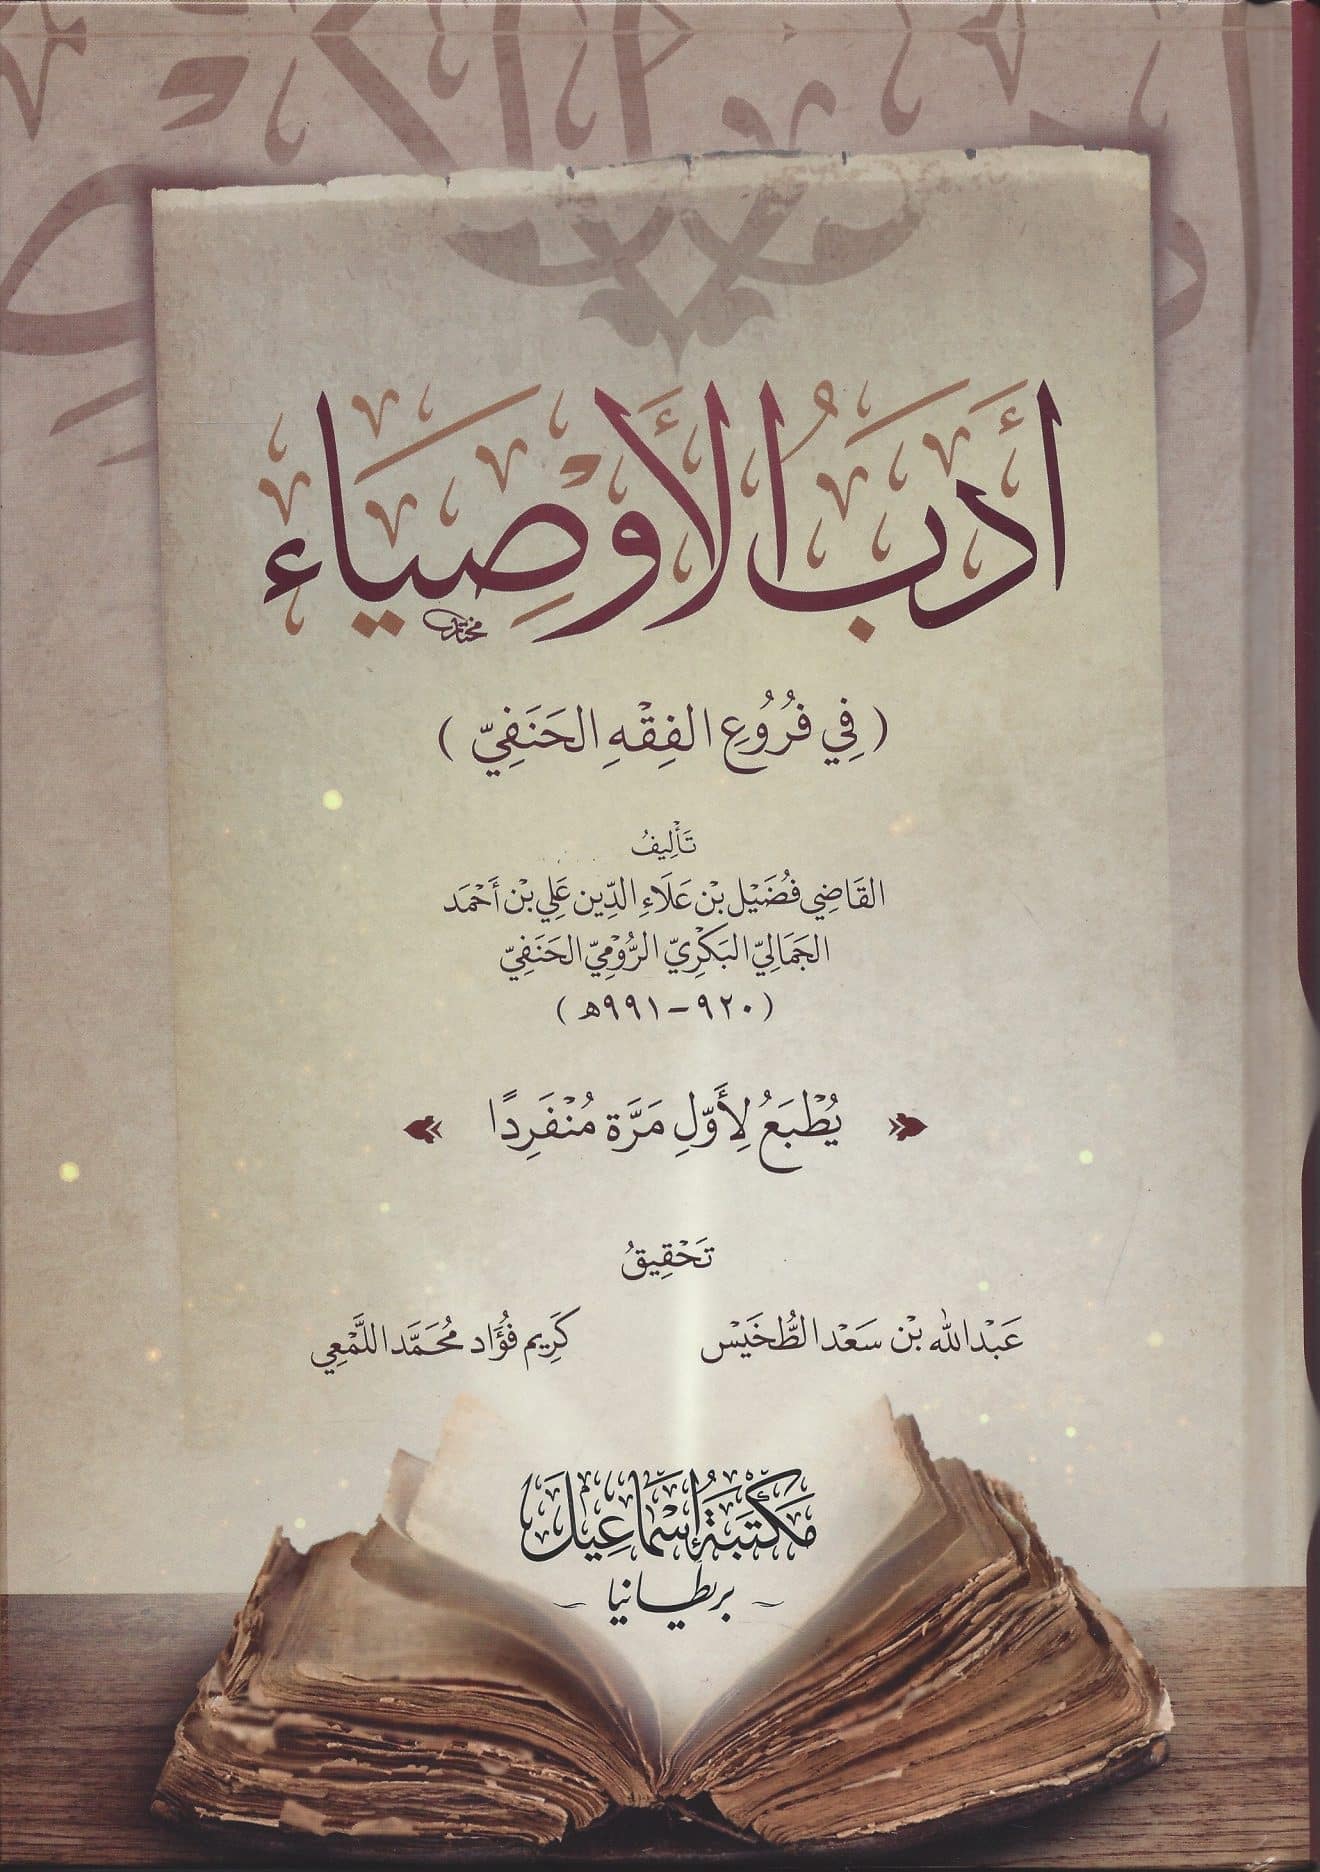 أَدَبُ الأَوْصِيَاءِ
مختار
( فِي فُرُوعِ الفِقْهِ الحَنَفِيّ )
تَأْلِيفُ
القَاضِي فُضَيْل بْن عَلَاءِ الدِّين عَلِي بْن أَحْمَد
الجَمَالِيّ البَكْرِيّ الرُّوْمِيّ الحَنَفِيّ
(٩٢٠-٩٩١هـ)
يُطْبَعُ لِأَوَّلِ مَرَّة مُنْفَرِدًا
تَحْقِيقُ
عَبْدالله بْن سَعَد الطُّخَيْس
كَرِيم فُؤَاد مُحَمَّد اللَّمْعِي
مَكْتَبَةُ إِسْمَاعِيل
بريطانيا